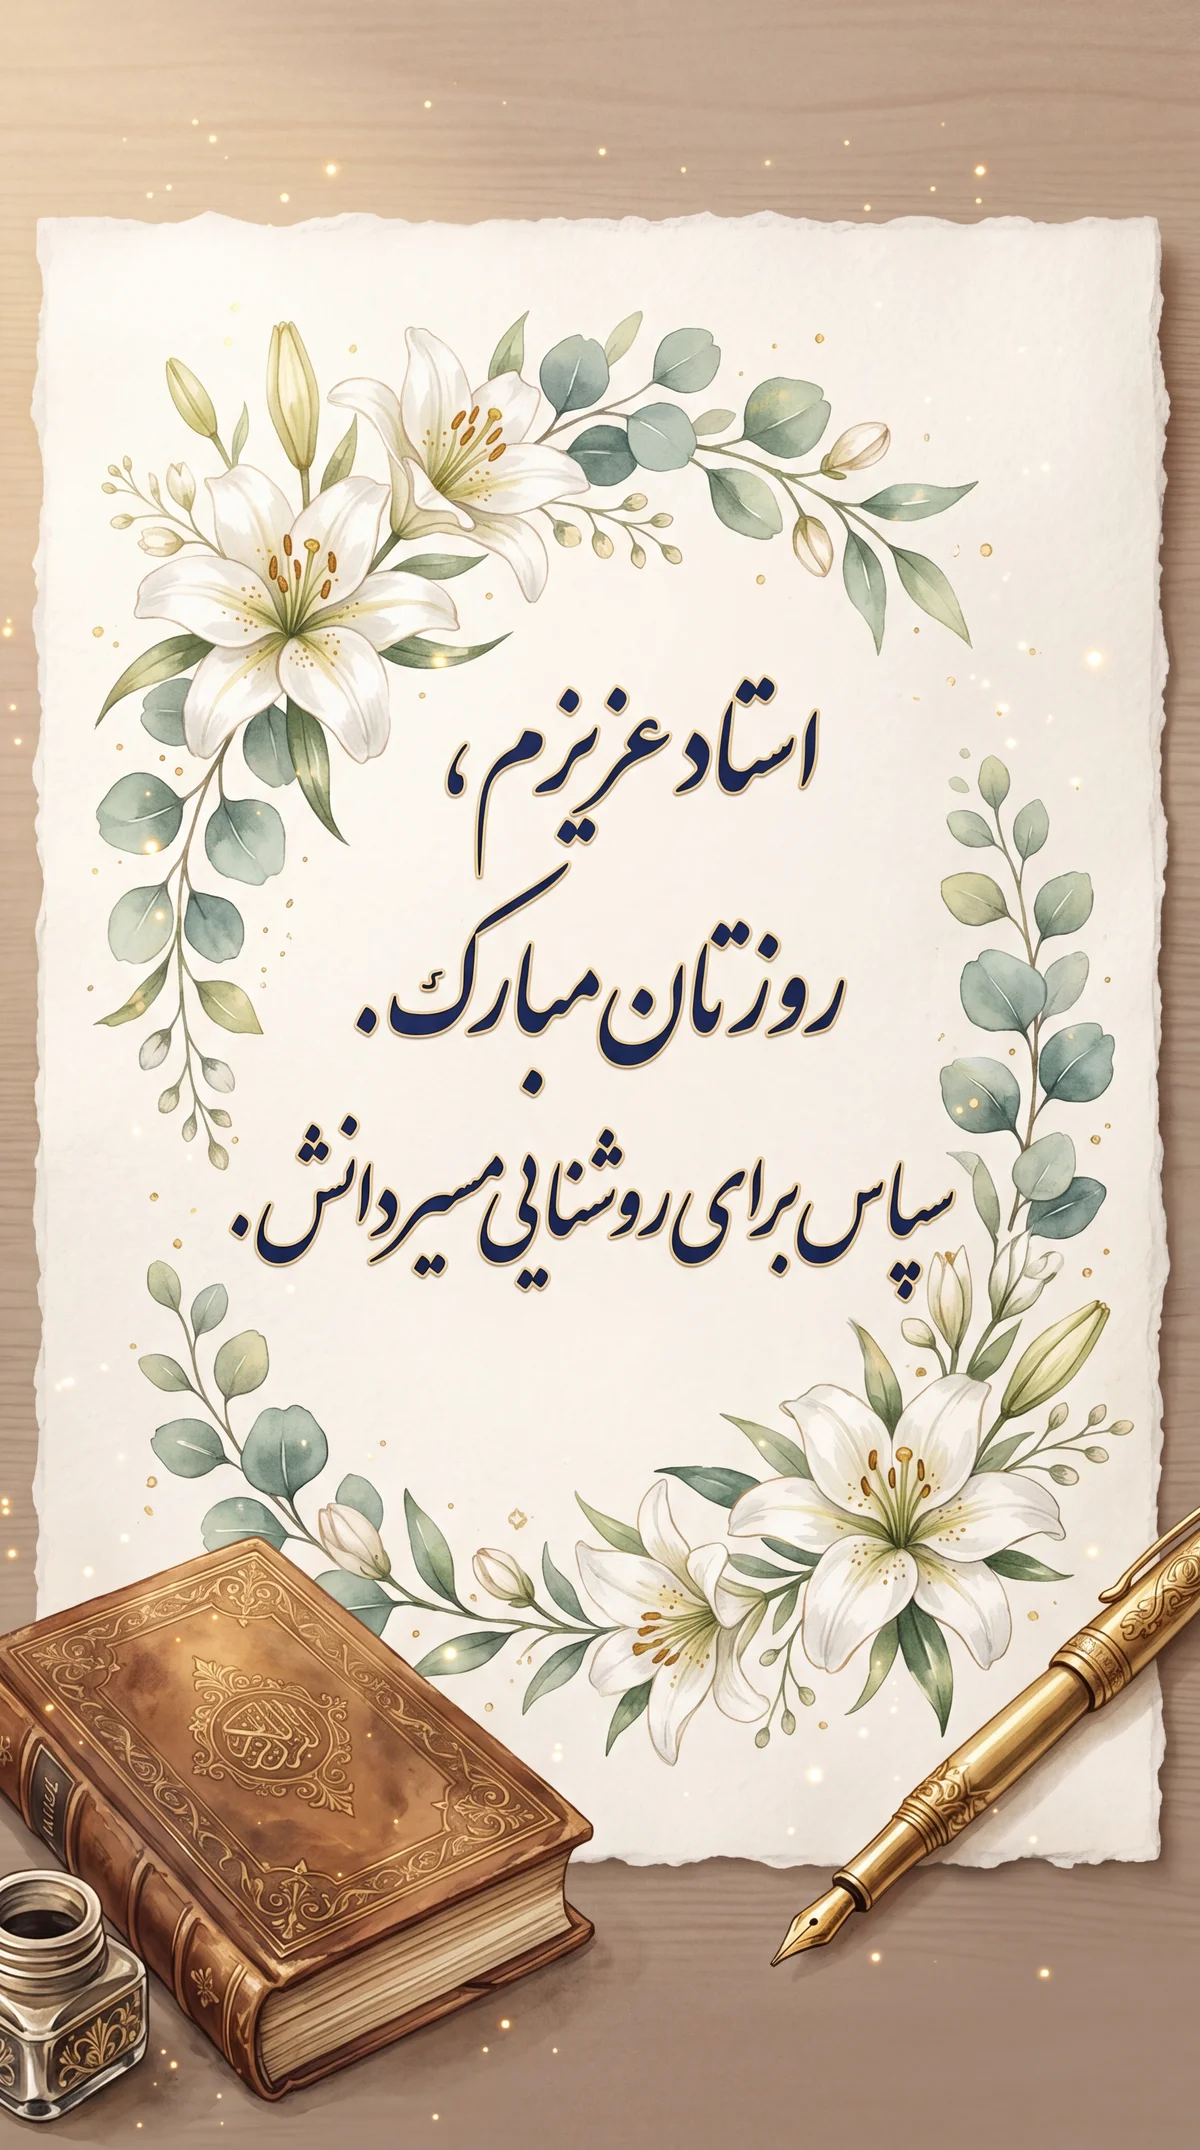 استاد عزیزم،
روزتان مبارک.
سپاس برای روشنایی مسیر دانش.